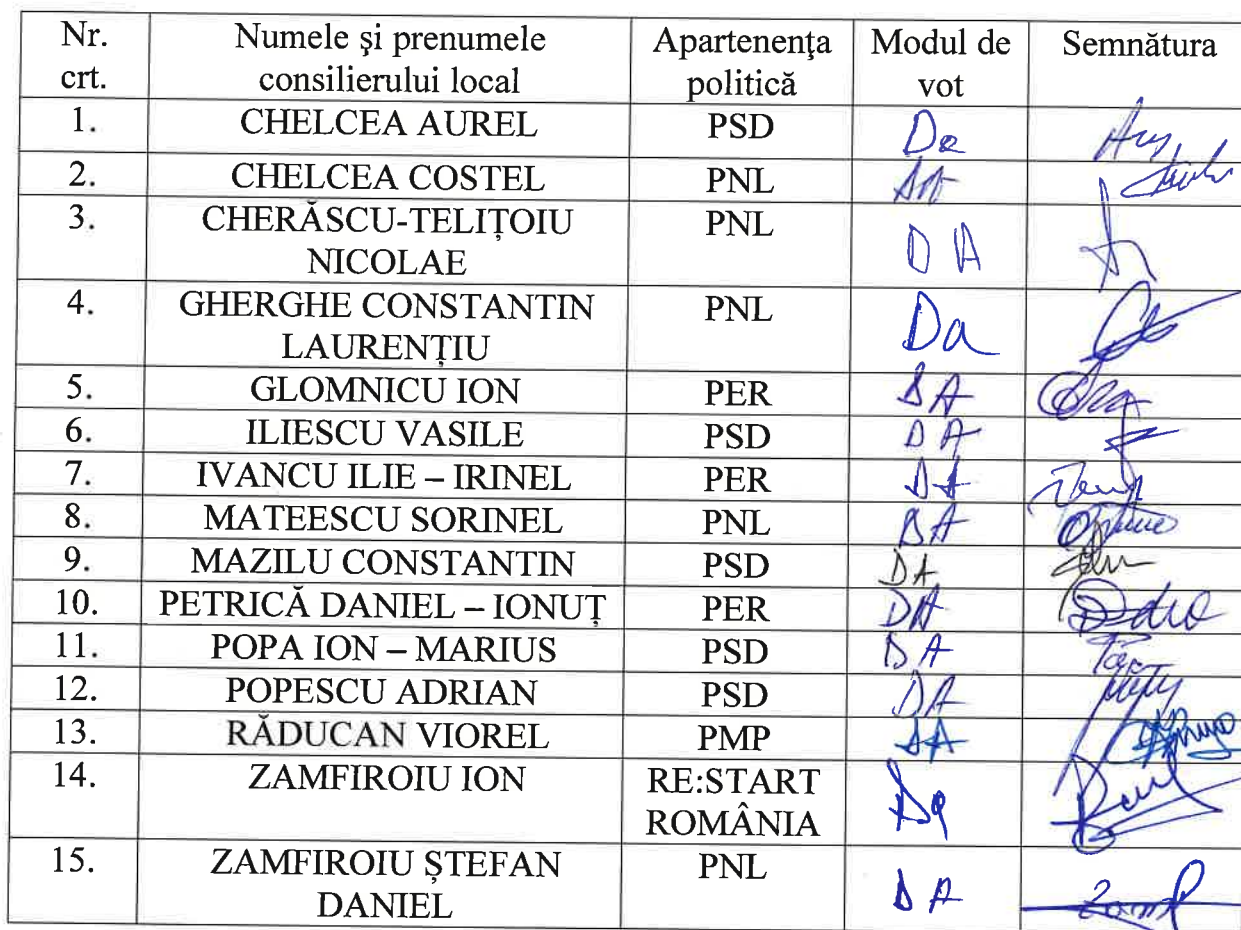 Nr. crt. Numele şi prenumele consilierului local Apartenenţa politică Modul de vot Semnătura
1. CHELCEA AUREL PSD Da
2. CHELCEA COSTEL PNL
3. CHERĂSCU-TELIȚOIU NICOLAE PNL DA
4. GHERGHE CONSTANTIN LAURENȚIU PNL Da
5. GLOMNICU ION PER DA
6. ILIESCU VASILE PSD DA
7. IVANCU ILIE – IRINEL PER DA
8. MATEESCU SORINEL PNL DA
9. MAZILU CONSTANTIN PSD DA
10. PETRICĂ DANIEL – IONUȚ PER DA
11. POPA ION – MARIUS PSD DA
12. POPESCU ADRIAN PSD DA
13. RĂDUCAN VIOREL PMP DA
14. ZAMFIROIU ION RE:START ROMÂNIA Da
15. ZAMFIROIU ȘTEFAN DANIEL PNL DA